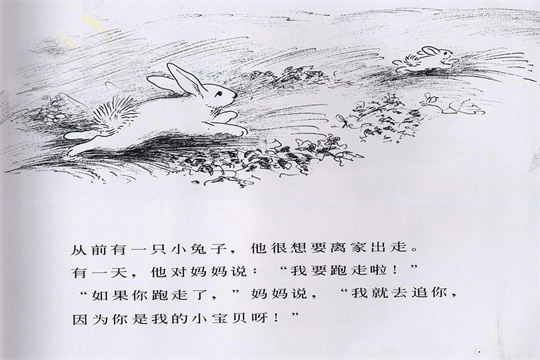 从前有一只小兔子，他很想要离家出走。
有一天，他对妈妈说：“我要跑走啦！”
“如果你跑走了，”妈妈说，“我就去追你，
因为你是我的小宝贝呀！”